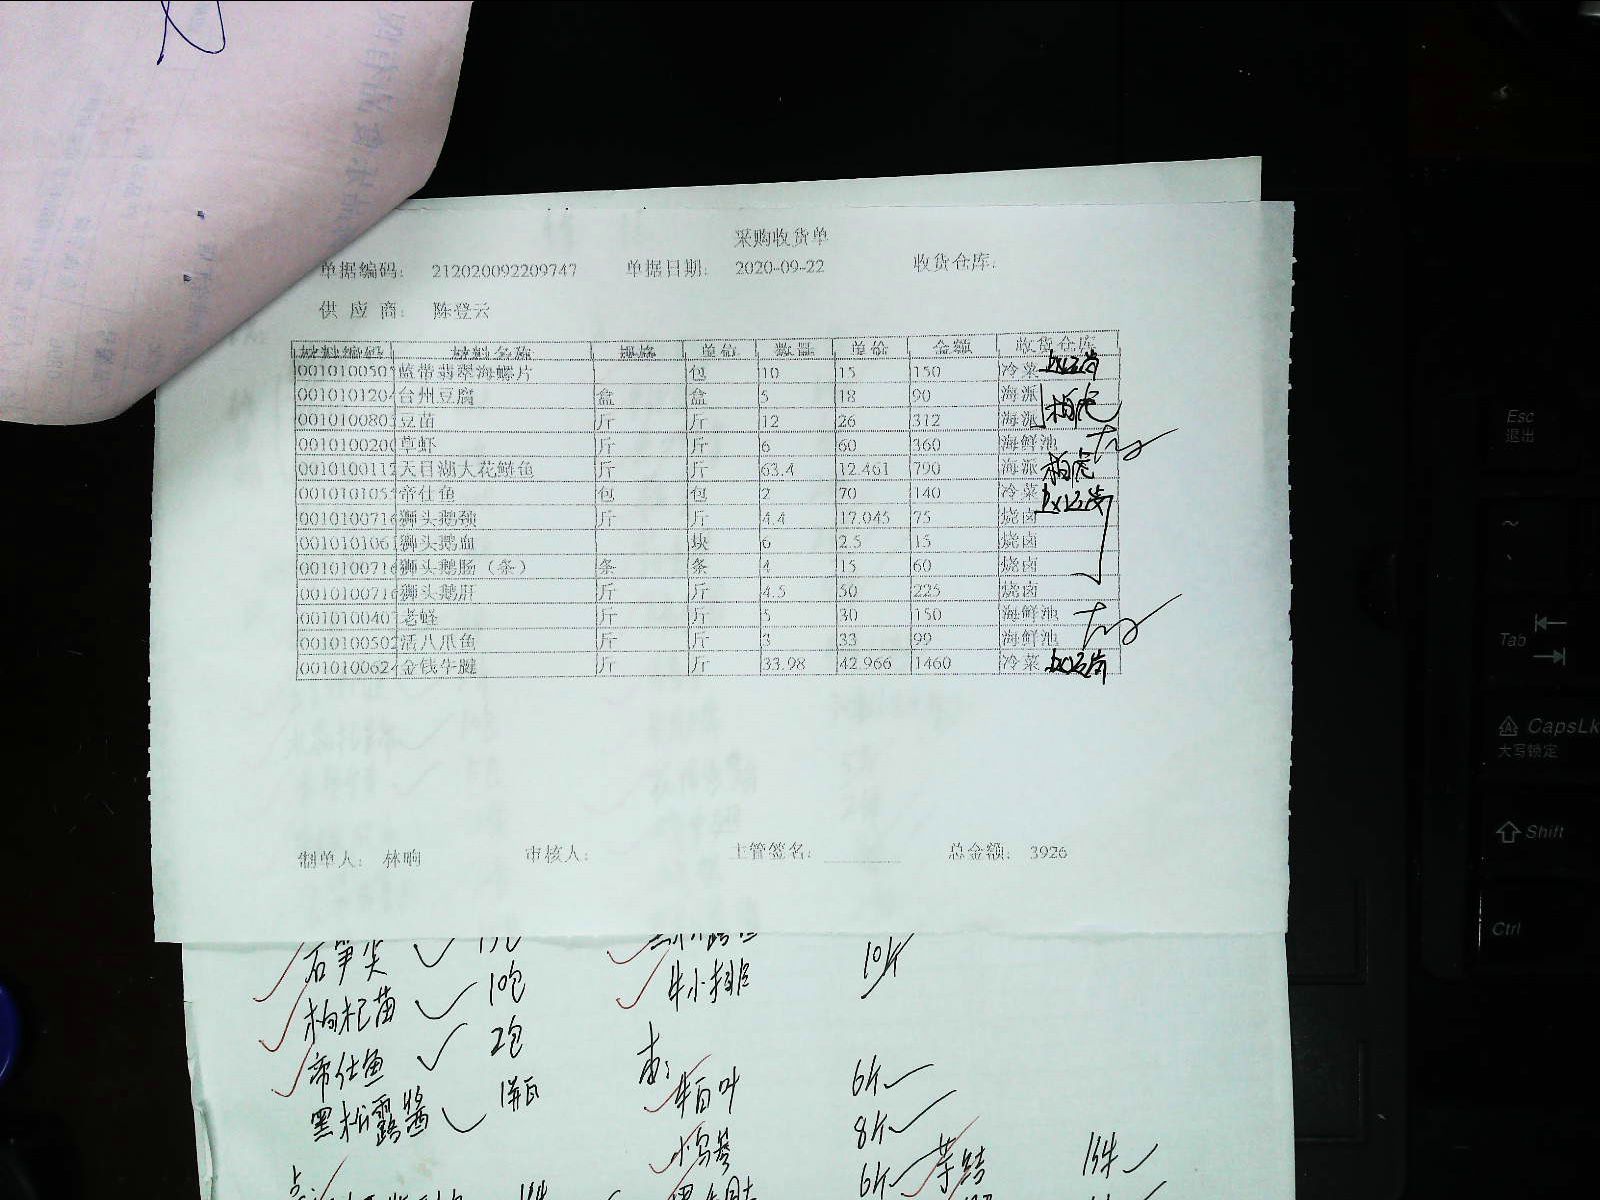 采购收货单
单据编码: 212020092209747 单据日期: 2020-09-22 收货仓库:
供 应 商: 陈登云
材料编码 材料名称 规格 单位 数量 单价 金额 收货仓库
001010050 蓝带翡翠海螺片 包 10 15 150 冷菜
001010120 台州豆腐 盒 盒 5 18 90 海派
001010080 豆苗 斤 斤 12 26 312 海派
001010020 草虾 斤 斤 6 60 360 海鲜池
001010011 天目湖大花鲢鱼 斤 斤 63.4 12.461 790 海派
001010105 帝仕鱼 包 包 2 70 140 冷菜
001010071 狮头鹅颈 斤 斤 4.4 17.045 75 烧卤
001010106 狮头鹅血 块 6 2.5 15 烧卤
001010071 狮头鹅肠（条） 条 条 4 15 60 烧卤
001010071 狮头鹅肝 斤 斤 4.5 50 225 烧卤
001010040 老蛏 斤 斤 5 30 150 海鲜池
001010050 活八爪鱼 斤 斤 3 33 99 海鲜池
001010062 金钱牛腱 斤 斤 33.98 42.966 1460 冷菜
制单人: 林响 审核人: 主管签名: 总金额: 3926
石笋尖
牛小排 10斤
枸杞苗 10包
帝仕鱼 2包
黑松露酱 1瓶
牛百叶 6斤
8斤
6斤
Esc
退出
~
Tab
CapsLk
大写锁定
Shift
Ctrl